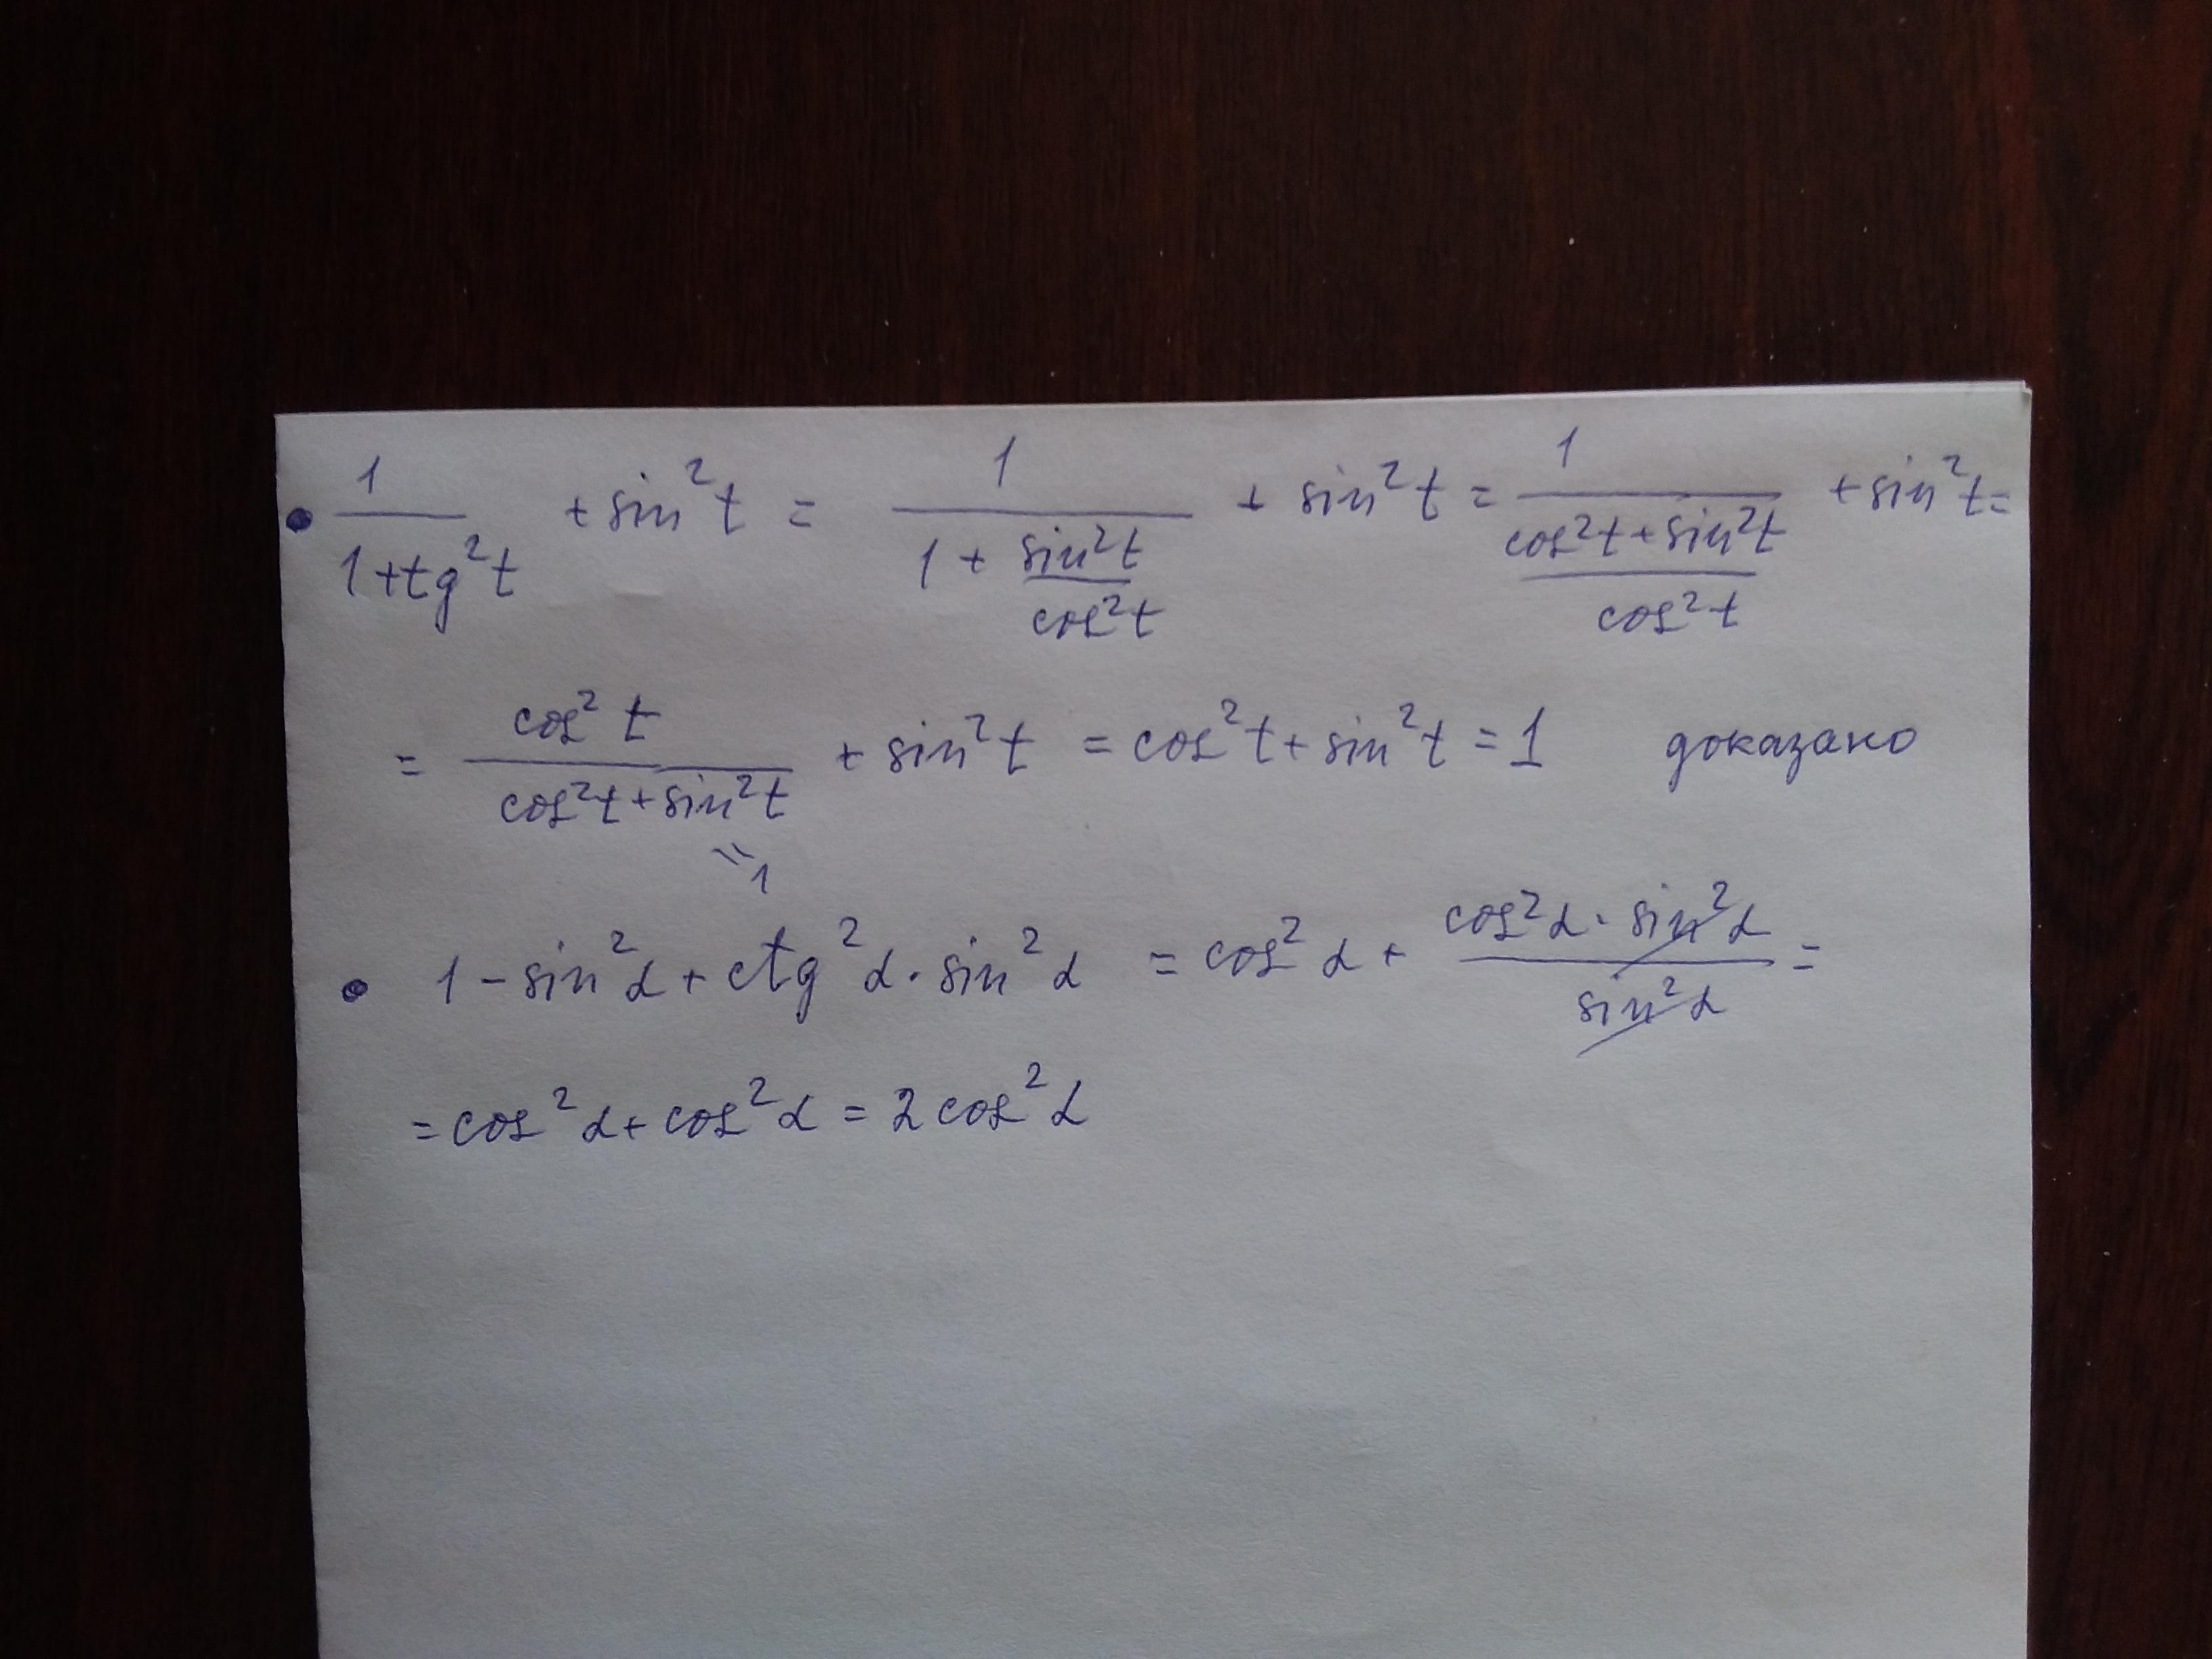 • 1/(1+tg²t) + sin²t = 1/(1 + sin²t/cos²t) + sin²t = 1/((cos²t + sin²t)/cos²t) + sin²t =
= cos²t/(cos²t + sin²t) + sin²t = cos²t + sin²t = 1 доказано
=1
• 1 - sin²α + ctg²α · sin²α = cos²α + (cos²α · sin²α)/sin²α =
= cos²α + cos²α = 2cos²α